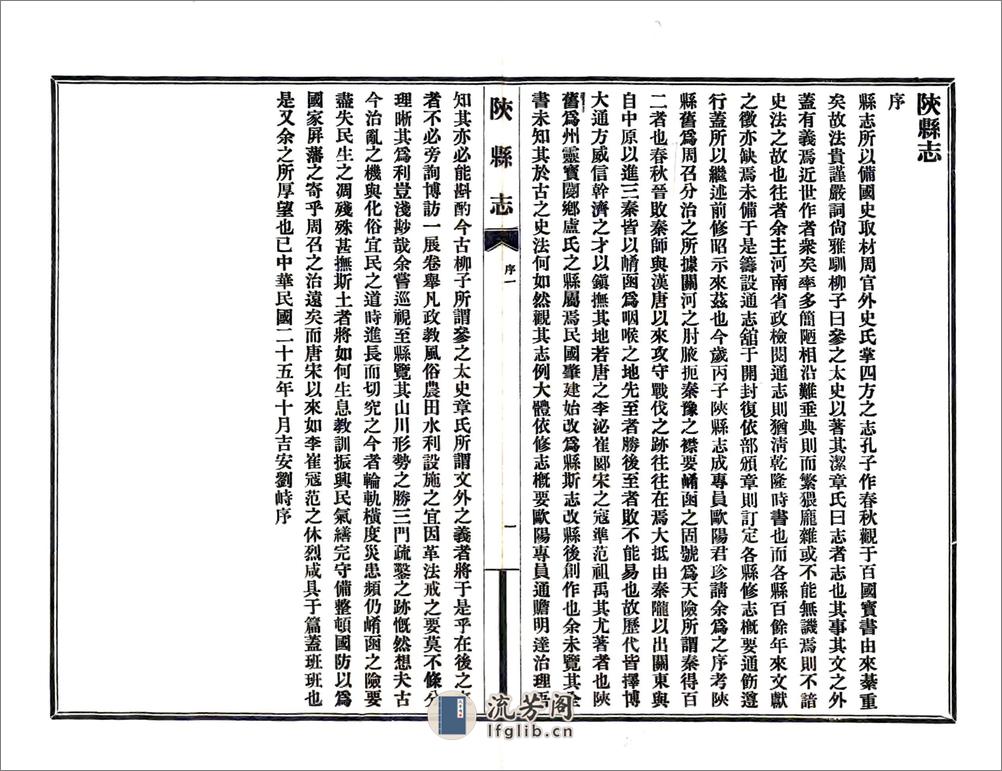 陝縣志
序
縣志所以備國史取材周官外史氏掌四方之志孔子作春秋觀于百國寶書由來綦重
矣故法貴謹嚴詞尙雅馴柳子曰參之太史以著其潔章氏曰志者志也其事其文之外
蓋有義焉近世作者衆矣率多簡陋相沿難垂典則而繁猥龐雜或不能無譏焉則不諳
史法之故也往者余主河南省政檢閱通志則猶淸乾隆時書也而各縣百餘年來文獻
之徵亦缺焉未備于是籌設通志舘于開封復依部頒章則訂定各縣修志槪要通飭遵
行蓋所以繼述前修昭示來茲也今歲丙子陝縣志成專員歐陽君珍請余爲之序考陝
縣舊爲周召分治之所據關河之肘腋扼秦豫之襟要崤函之固號爲天險所謂秦得百
二者也春秋晉敗秦師與漢唐以來攻守戰伐之跡往往在焉大抵由秦隴以出關東與
自中原以進三秦皆以崤函爲咽喉之地先至者勝後至者敗不能易也故歷代皆擇博
大通方威信幹濟之才以鎭撫其地若唐之李泌崔郾宋之寇準范祖禹其尤著者也陝
舊爲州靈寶閿鄉盧氏之縣屬焉民國肇建始改爲縣斯志改縣後創作也余未覽其全
書未知其於古之史法何如然觀其志例大體依修志槪要歐陽專員通贍明達治理
陝縣志
序一
一
知其亦必能斟酌今古柳子所謂參之太史章氏所謂文外之義者將于是乎在後之
者不必旁詢博訪一展卷舉凡政敎風俗農田水利設施之宜因革法戒之要莫不條分
理晰其爲利豈淺尠哉余嘗巡視至縣覽其山川形勢之勝三門疏鑿之跡慨然想夫古
今治亂之機與化俗宜民之道時進長而切究之今者輪軌橫度災患頻仍崤函之險要
盡失民生之凋殘殊甚撫斯土者將如何生息敎訓振興民氣繕完守備整頓國防以爲
國家屏藩之寄乎周召之治遠矣而唐宋以來如李崔寇范之休烈咸具于篇蓋班班也
是又余之所厚望也已中華民國二十五年十月吉安劉峙序
流芳阁
lfglib.cn